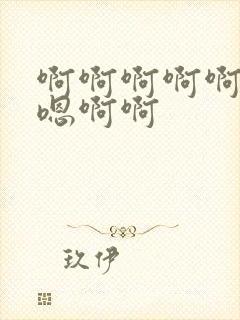 啊啊啊啊啊
嗯啊啊
玖伊